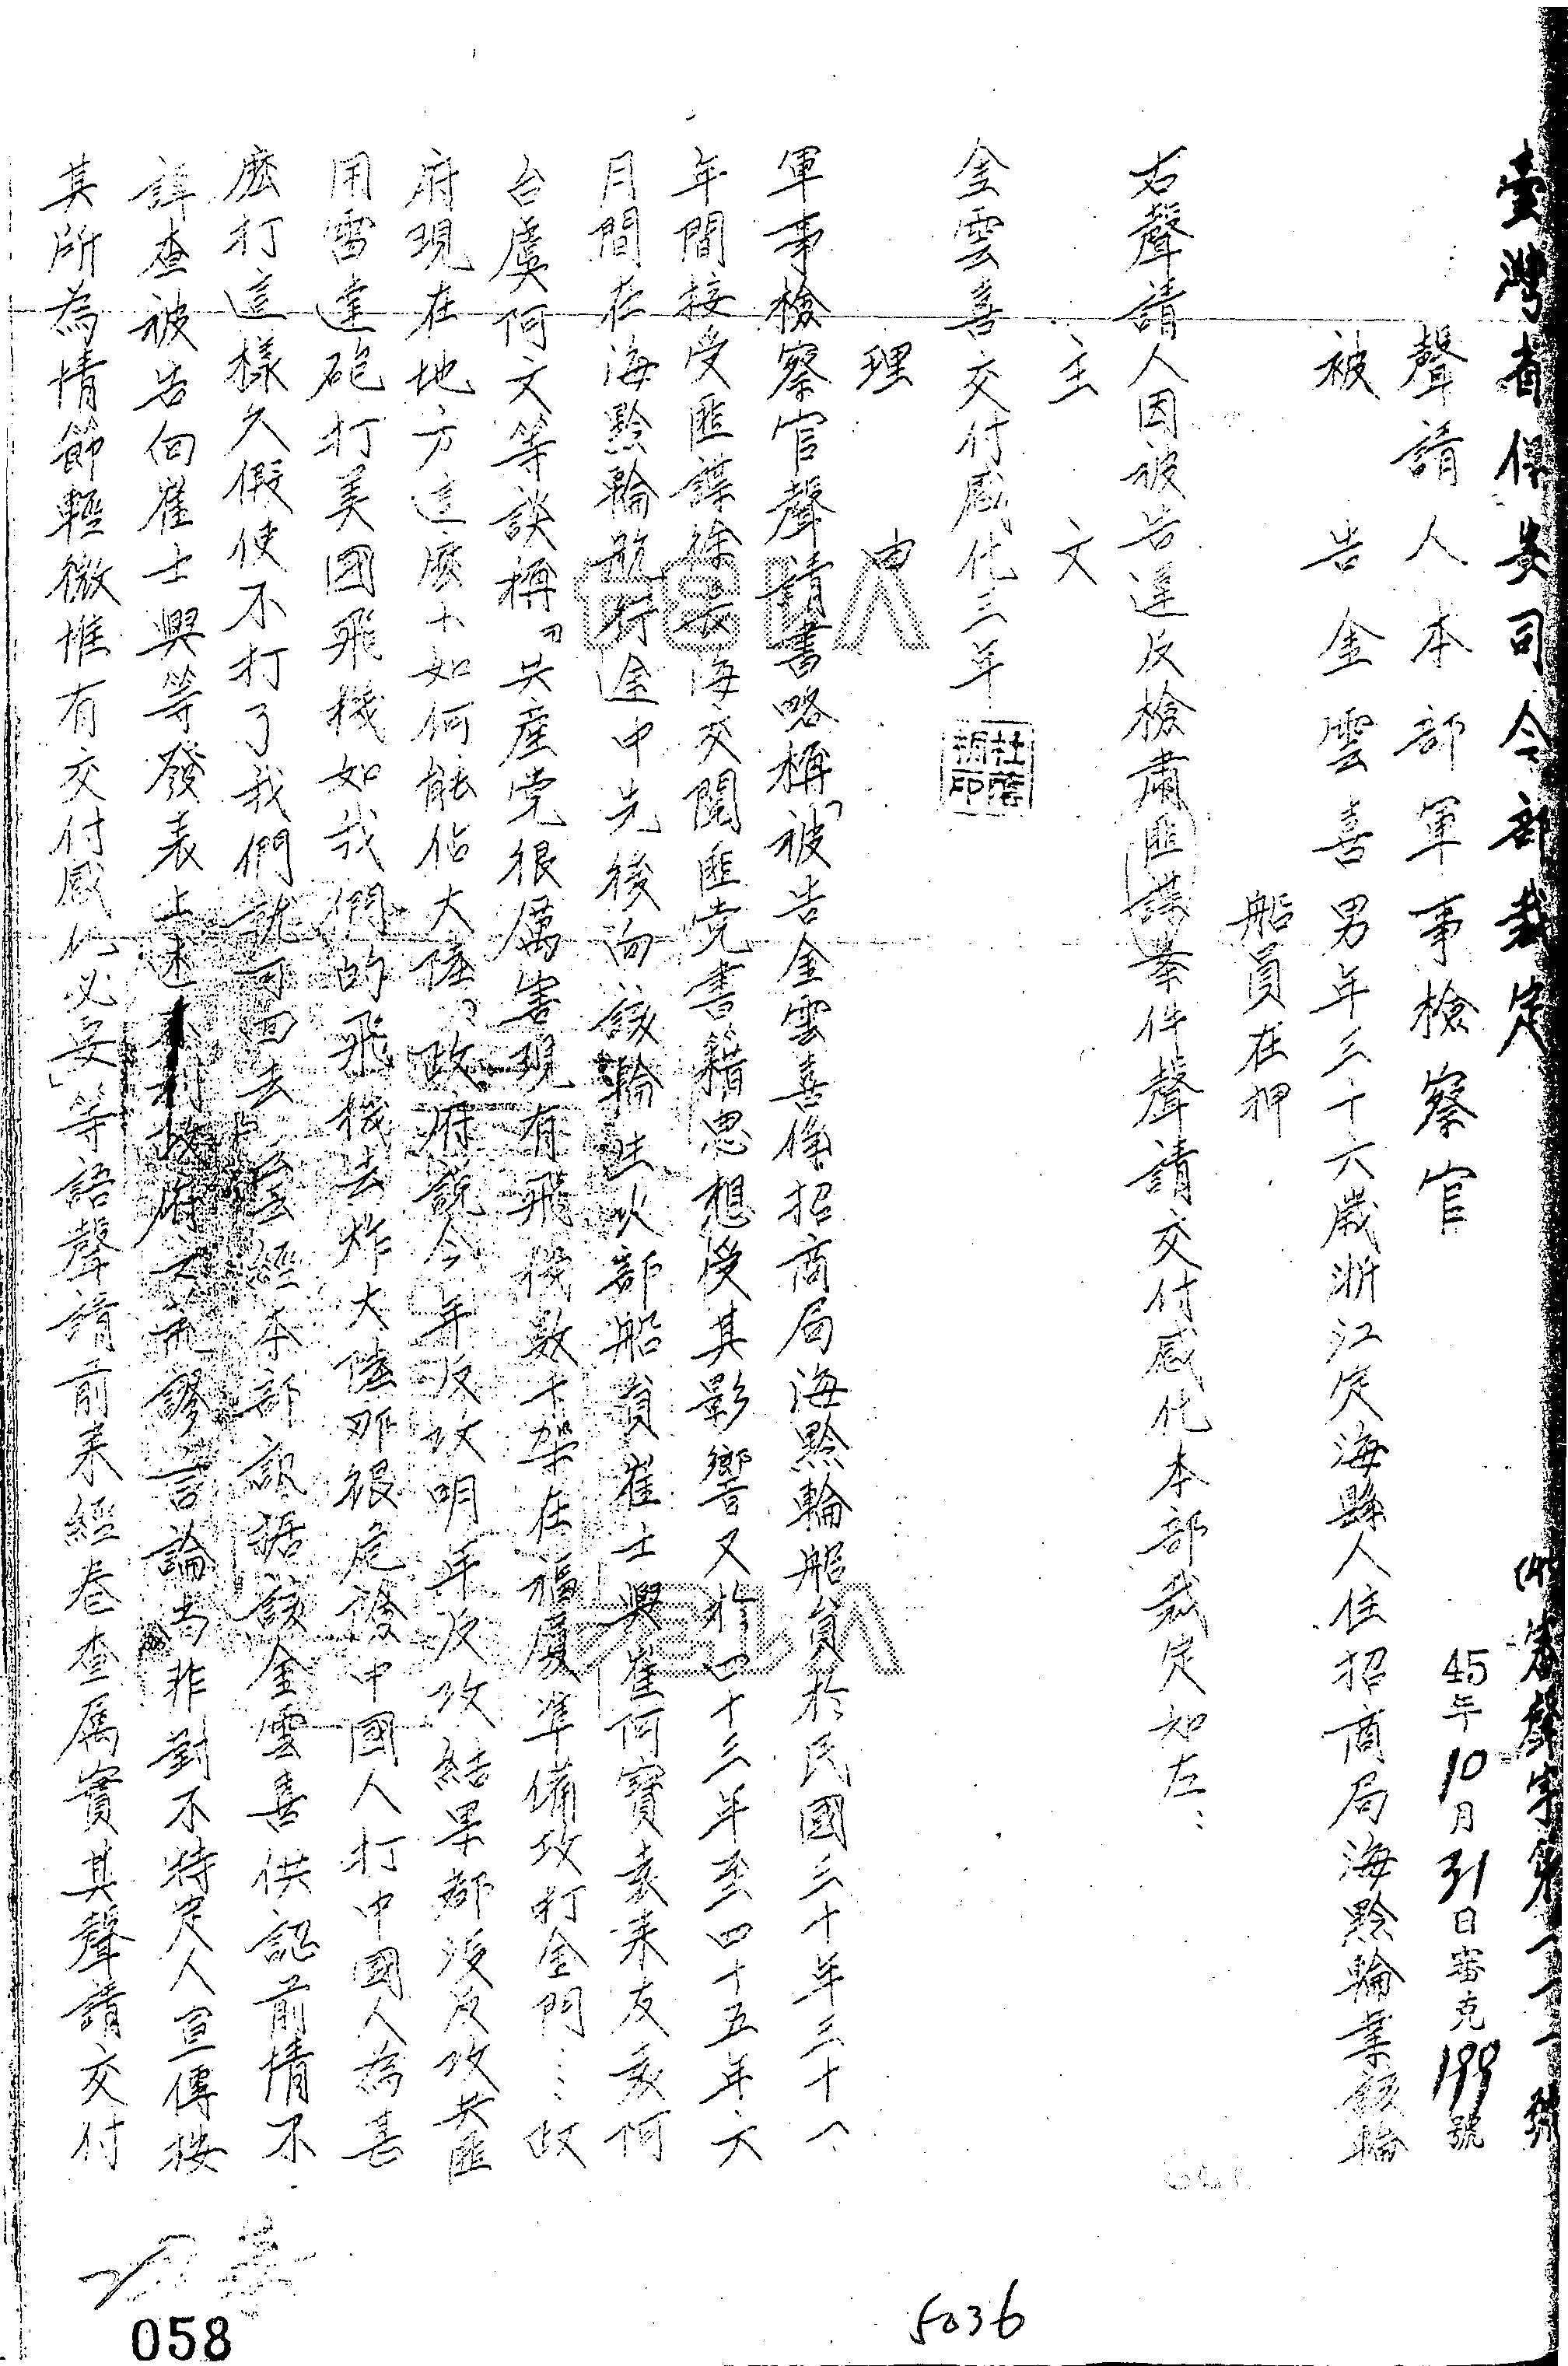 臺灣省保安司令部裁定
審聲字第一二一號
45年10月31日審克199號
聲請人本部軍事檢察官
被告金雲喜男年三十六歲浙江定海縣人住招商局海黔輪業該輪
船員在押
右聲請人因被告違反檢肅匪諜案件聲請交付感化本部裁定如左：
主文
金雲喜交付感化三年
理由
軍事檢察官聲請書略稱「被告金雲喜係招商局海黔輪船員於民國三十年三十八
年間接受匪諜徐 海交閱匪党書籍思想受其影響又於四十三年至四十五年六
月間在海黔輪航行途中先後向該輪生火部船員崔士興崔何寶袁來友奚何
台虞何文等談稱『共産党很厲害現有飛機数十架在福廈準備攻打金門……政
府現在地方這麽小如何能佔大陸』『政府說今年反攻明年反攻結果都没反攻共匪
用雷達砲打美國飛機如我們的飛機去炸大陸那很危險中國人打中國人為甚
麽打這樣久假使不打了我們就可回去』云云經本部訊据該金雲喜供認前情不
諱查被告向崔士興等發表上述不利政府之荒謬言論尚非對不特定人宣傳按
其所為情節輕微惟有交付感化必要」等語聲請前来經卷查属實其聲請交付
5036
058